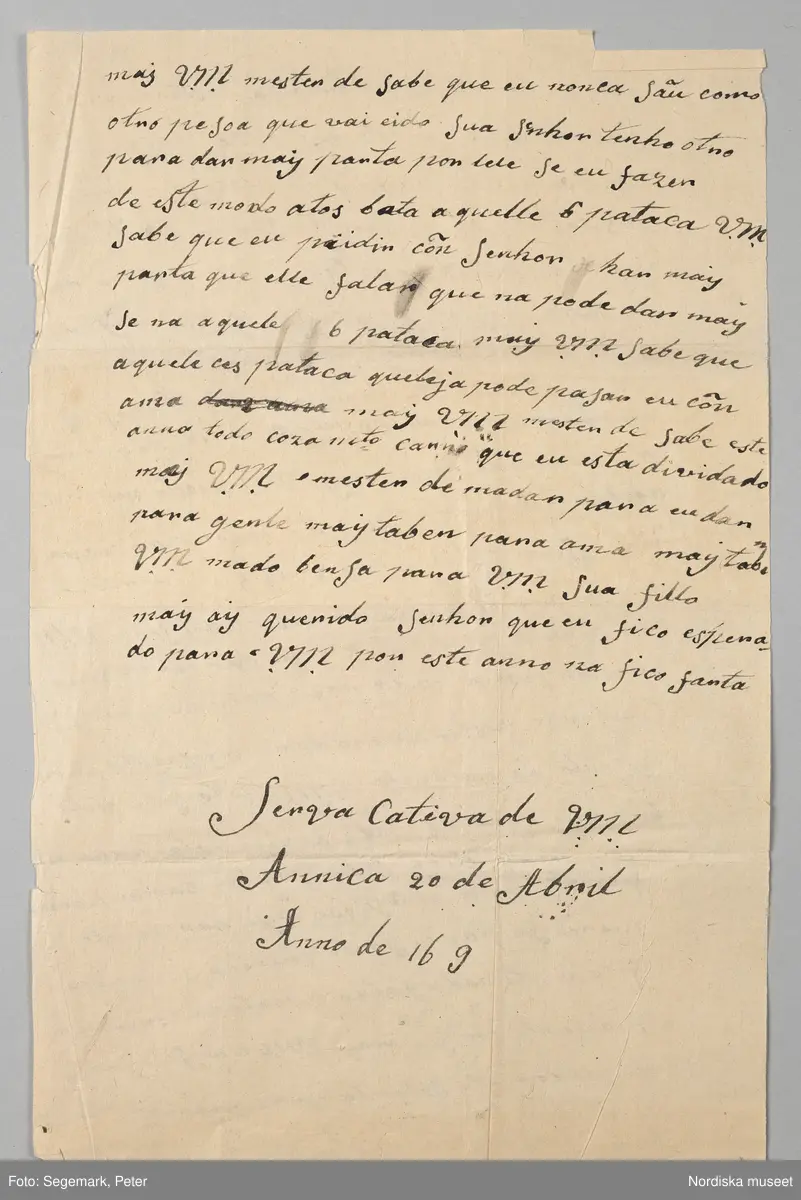 maij VM mester de sabe que eu nonca sãu como
otro pesoa que vai eido sua senhor tenho otro
para dar maij parta por lele se eu fazer
de este modo atos bata aquelle 6 pataca VM
sabe que eu piidir cõn senhor han maij
parta que elle falar que na pode dar maij
se na aquele 6 pataca. maij VM sabe que
aquele ces pataca quebeja pode pasar eu cõn
ama maij VM mester de sabe este
anno todo coza mto que eu esta dividado
maij VM mester de madar para eu dar
para gente maij taben para ama maij taben
VM mado bensa para VM sua fillo
maij aij querido senhor que eu fico espera-
do para VM por este anno na fico farta
Serva Cativa de VM
Annica 20 de Abril
Anno de 16 9
Foto: Segemark, Peter
Nordiska museet